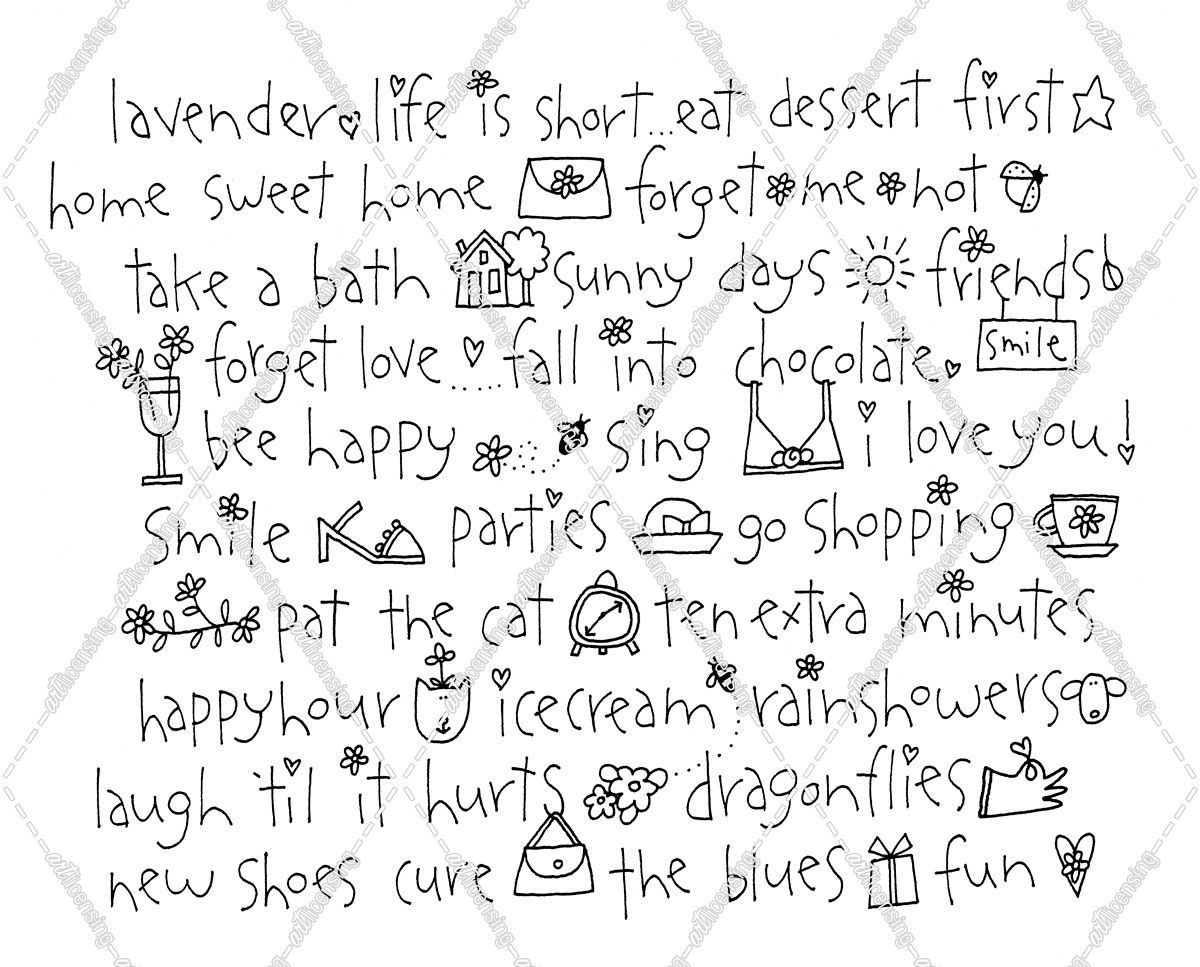 lavender life is short...eat dessert first
home sweet home forget me not
take a bath sunny days friends
forget love......fall into chocolate
smile
bee happy sing i love you!
smile parties go shopping
pat the cat ten extra minutes
happy hour icecream rainshowers
laugh 'til it hurts dragonflies
new shoes cure the blues fun
artlicensing